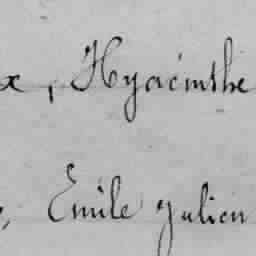 x, Hyacinthe
, Emile Julien